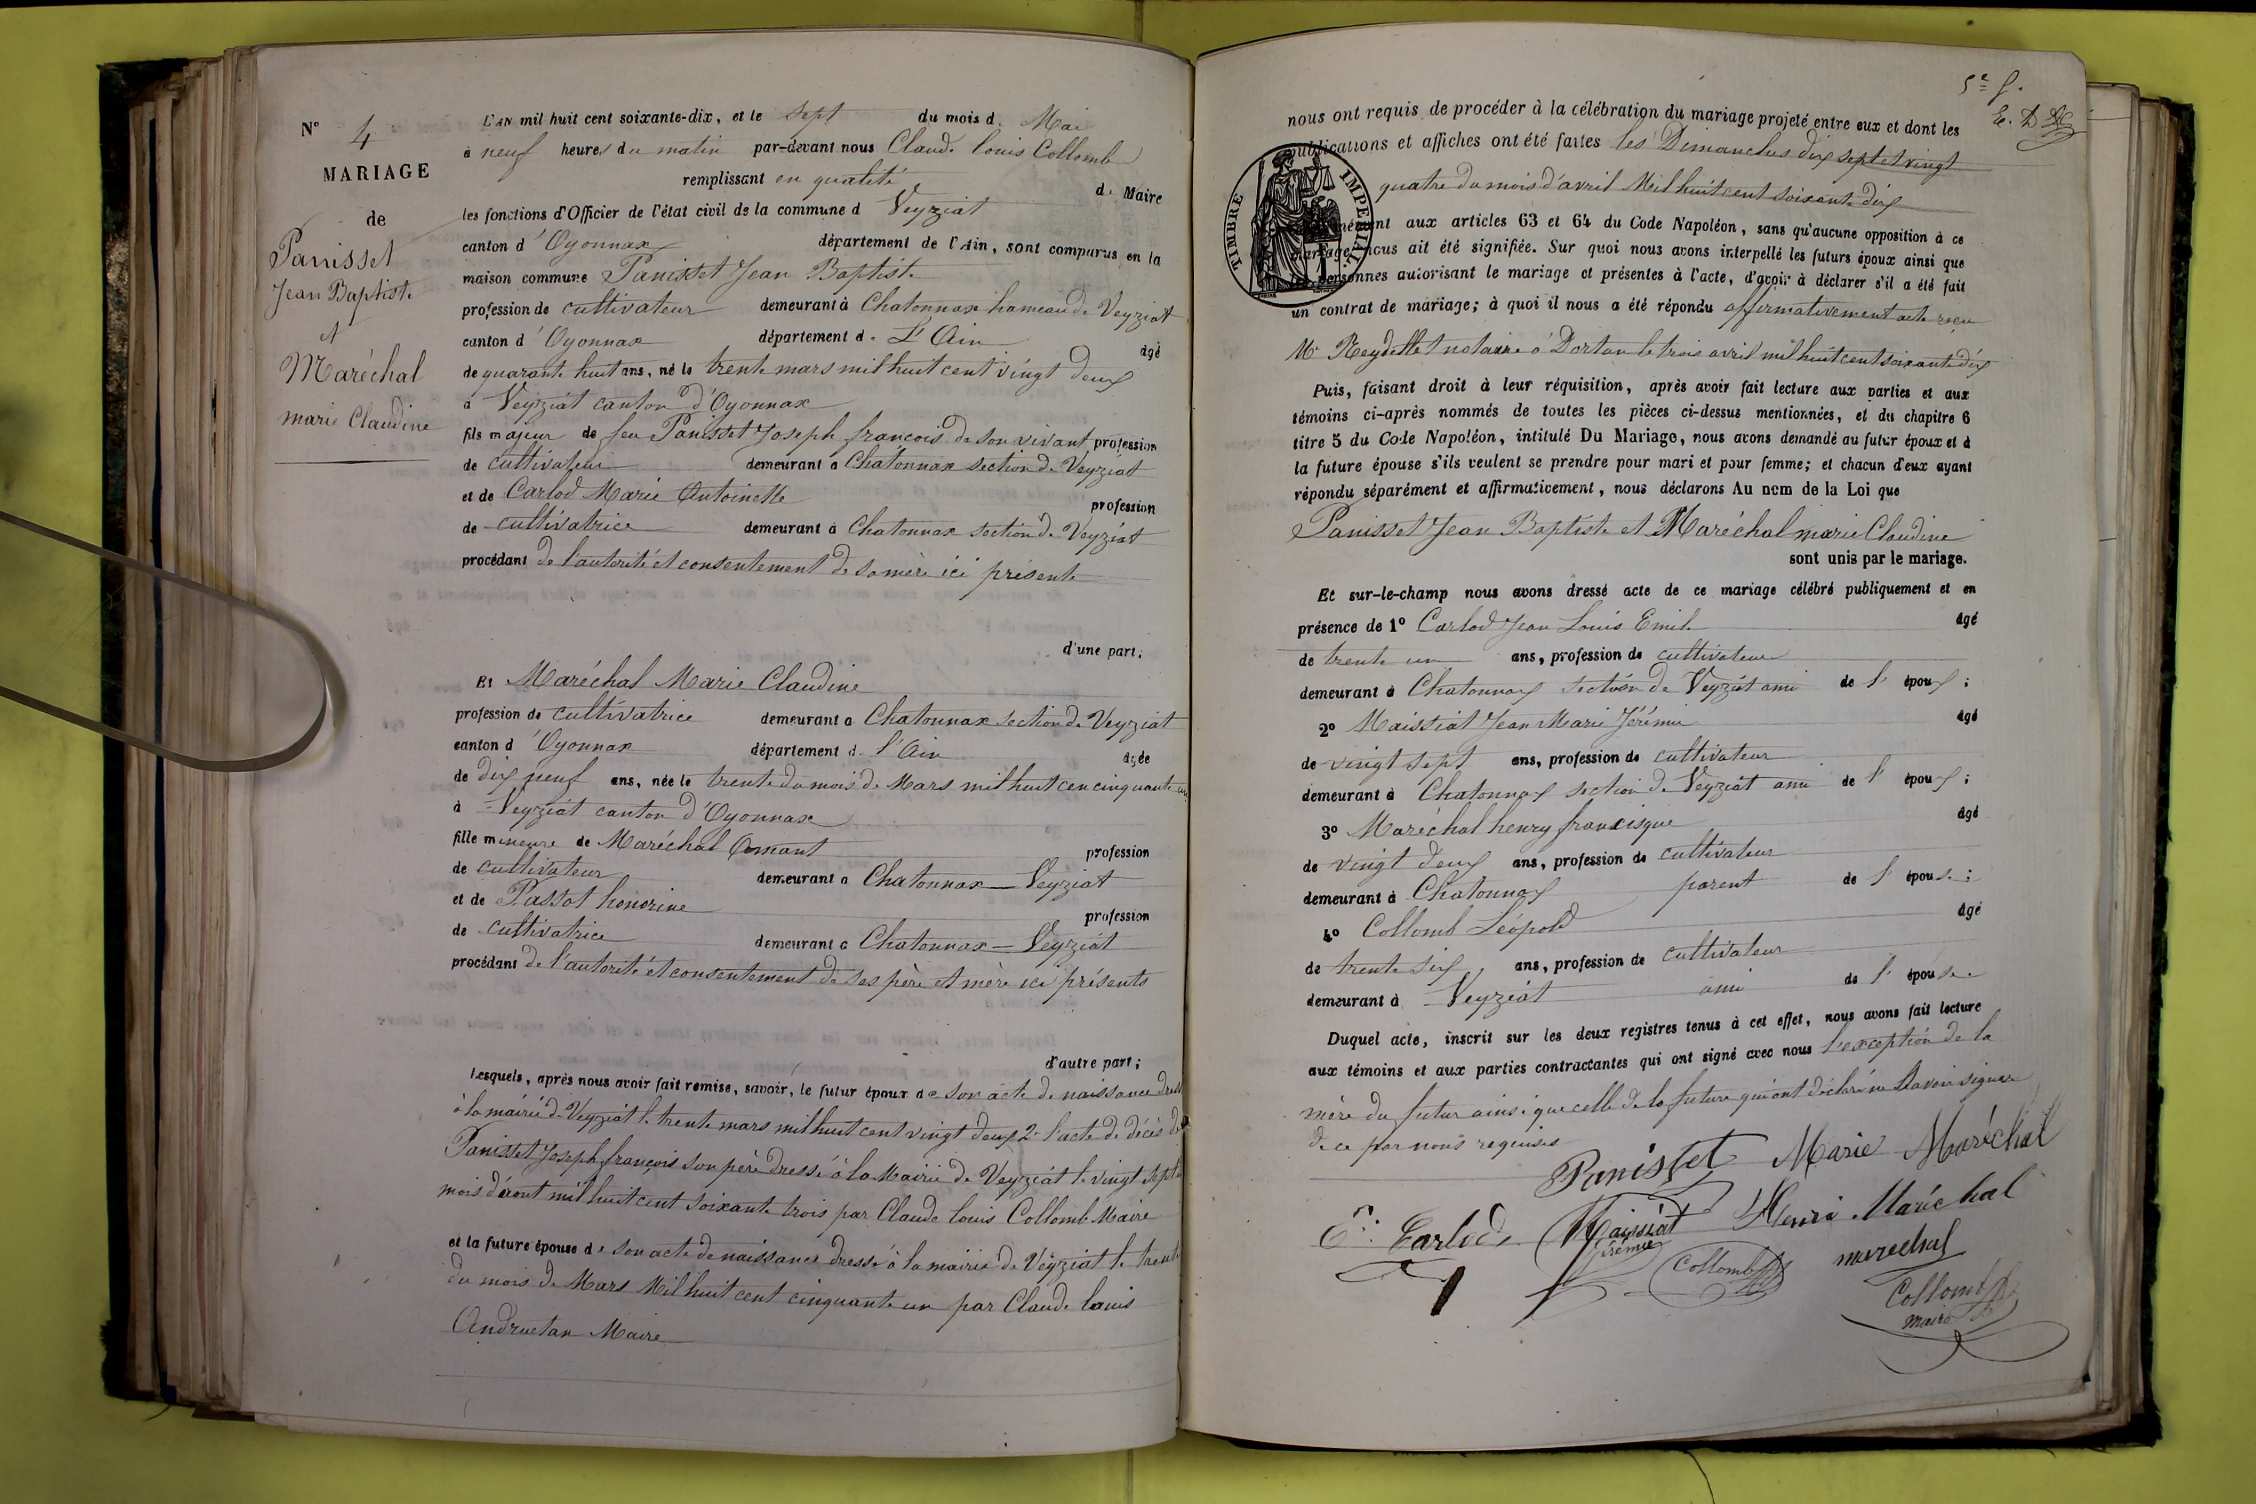 N° 4
MARIAGE
de
Panisset
Jean Baptiste
et
Maréchal
marie Claudine
L'AN mil huit cent soixante-dix, et le sept du mois d. Mai
à neuf heures du matin par-devant nous Claude louis Collomb
remplissant en qualité de Maire
les fonctions d'Officier de l'état civil de la commune d Veyziat
canton d'Oyonnax département de l'Ain, sont comparus en la
maison commune Panisset Jean Baptiste
profession de cultivateur demeurant à Chatonnax hameau de Veyziat
canton d'Oyonnax département d. L'Ain âgé
de quarante huit ans, né le trente mars mil huit cent vingt deux
à Veyziat canton d'Oyonnax
fils majeur de feu Panisset Joseph francois de son vivant profession
de cultivateur demeurant à Chatonnax section de Veyziat
et de Carlod Marie Antoinette profession
de cultivatrice demeurant à Chatonnax section de Veyziat
procédant de l'autorité et consentement de sa mère ici présente
d'une part;
Et Maréchal Marie Claudine
profession de cultivatrice demeurant à Chatonnax section de Veyziat
canton d'Oyonnax département d. l'Ain âgée
de dix neuf ans, née le trente du mois de Mars mil huit cen cinquante un
à Veyziat canton d'Oyonnax
fille mineure de Maréchal Amant profession
de cultivateur demeurant à Chatonnax — Veyziat
et de Passot honorine profession
de cultivatrice demeurant à Chatonnax — Veyziat
procédant de l'autorité et consentement de ses père et mère ici présents
d'autre part;
Lesquels, après nous avoir fait remise, savoir, le futur époux de son acte de naissance dressé
à la mairie de Veyziat le trente mars mil huit cent vingt deux 2° l'acte de décès de
Panisset Joseph françois son père dressé à la Mairie de Veyziat le vingt sept
mois d'août mil huit cent soixante trois par Claude louis Collomb Maire
et la future épouse de son acte de naissance dressé à la mairie de Veyziat le trente
du mois de Mars Mil huit cent cinquante un par Claude louis
Andruetan Maire
5e f.
nous ont requis de procéder à la célébration du mariage projeté entre eux et dont les
publications et affiches ont été faites les Dimanches dix sept et vingt
quatre du mois d'avril Mil huit cent soixante dix
TIMBRE IMPERIAL
conformément aux articles 63 et 64 du Code Napoléon, sans qu'aucune opposition à ce
mariage nous ait été signifiée. Sur quoi nous avons interpellé les futurs époux ainsi que
les personnes autorisant le mariage et présentes à l'acte, d'avoir à déclarer s'il a été fait
un contrat de mariage; à quoi il nous a été répondu affirmativement acte reçu
Me Reydellet notaire à Dortan le trois avril mil huit cent soixante dix
Puis, faisant droit à leur réquisition, après avoir fait lecture aux parties et aux
témoins ci-après nommés de toutes les pièces ci-dessus mentionnées, et du chapitre 6
titre 5 du Code Napoléon, intitulé Du Mariage, nous avons demandé au futur époux et à
la future épouse s'ils veulent se prendre pour mari et pour femme; et chacun d'eux ayant
répondu séparément et affirmativement, nous déclarons Au nom de la Loi que
Panisset Jean Baptiste et Maréchal marie Claudine
sont unis par le mariage.
Et sur-le-champ nous avons dressé acte de ce mariage célébré publiquement et en
présence de 1° Carlod Jean Louis Emile âgé
de trente un ans, profession de cultivateur
demeurant à Chatonnax section de Veyziat ami de l'époux;
2° Maissiat Jean Marie Jérémie âgé
de vingt sept ans, profession de cultivateur
demeurant à Chatonnax section de Veyziat ami de l'époux;
3° Maréchal henry francisque âgé
de vingt deux ans, profession de cultivateur
demeurant à Chatonnax parent de l'épouse;
4° Collomb Léopold âgé
de trente six ans, profession de cultivateur
demeurant à Veyziat ami de l'épouse
Duquel acte, inscrit sur les deux registres tenus à cet effet, nous avons fait lecture
aux témoins et aux parties contractantes qui ont signé avec nous l'exception de la
mère du futur ainsi que celle de la future qui ont déclaré ne savoir signer
de ce par nous requises
Panisset Marie Maréchal
E. Carlod Maissiat Jérémie Henri Maréchal
Collomb marechal
Collomb
maire